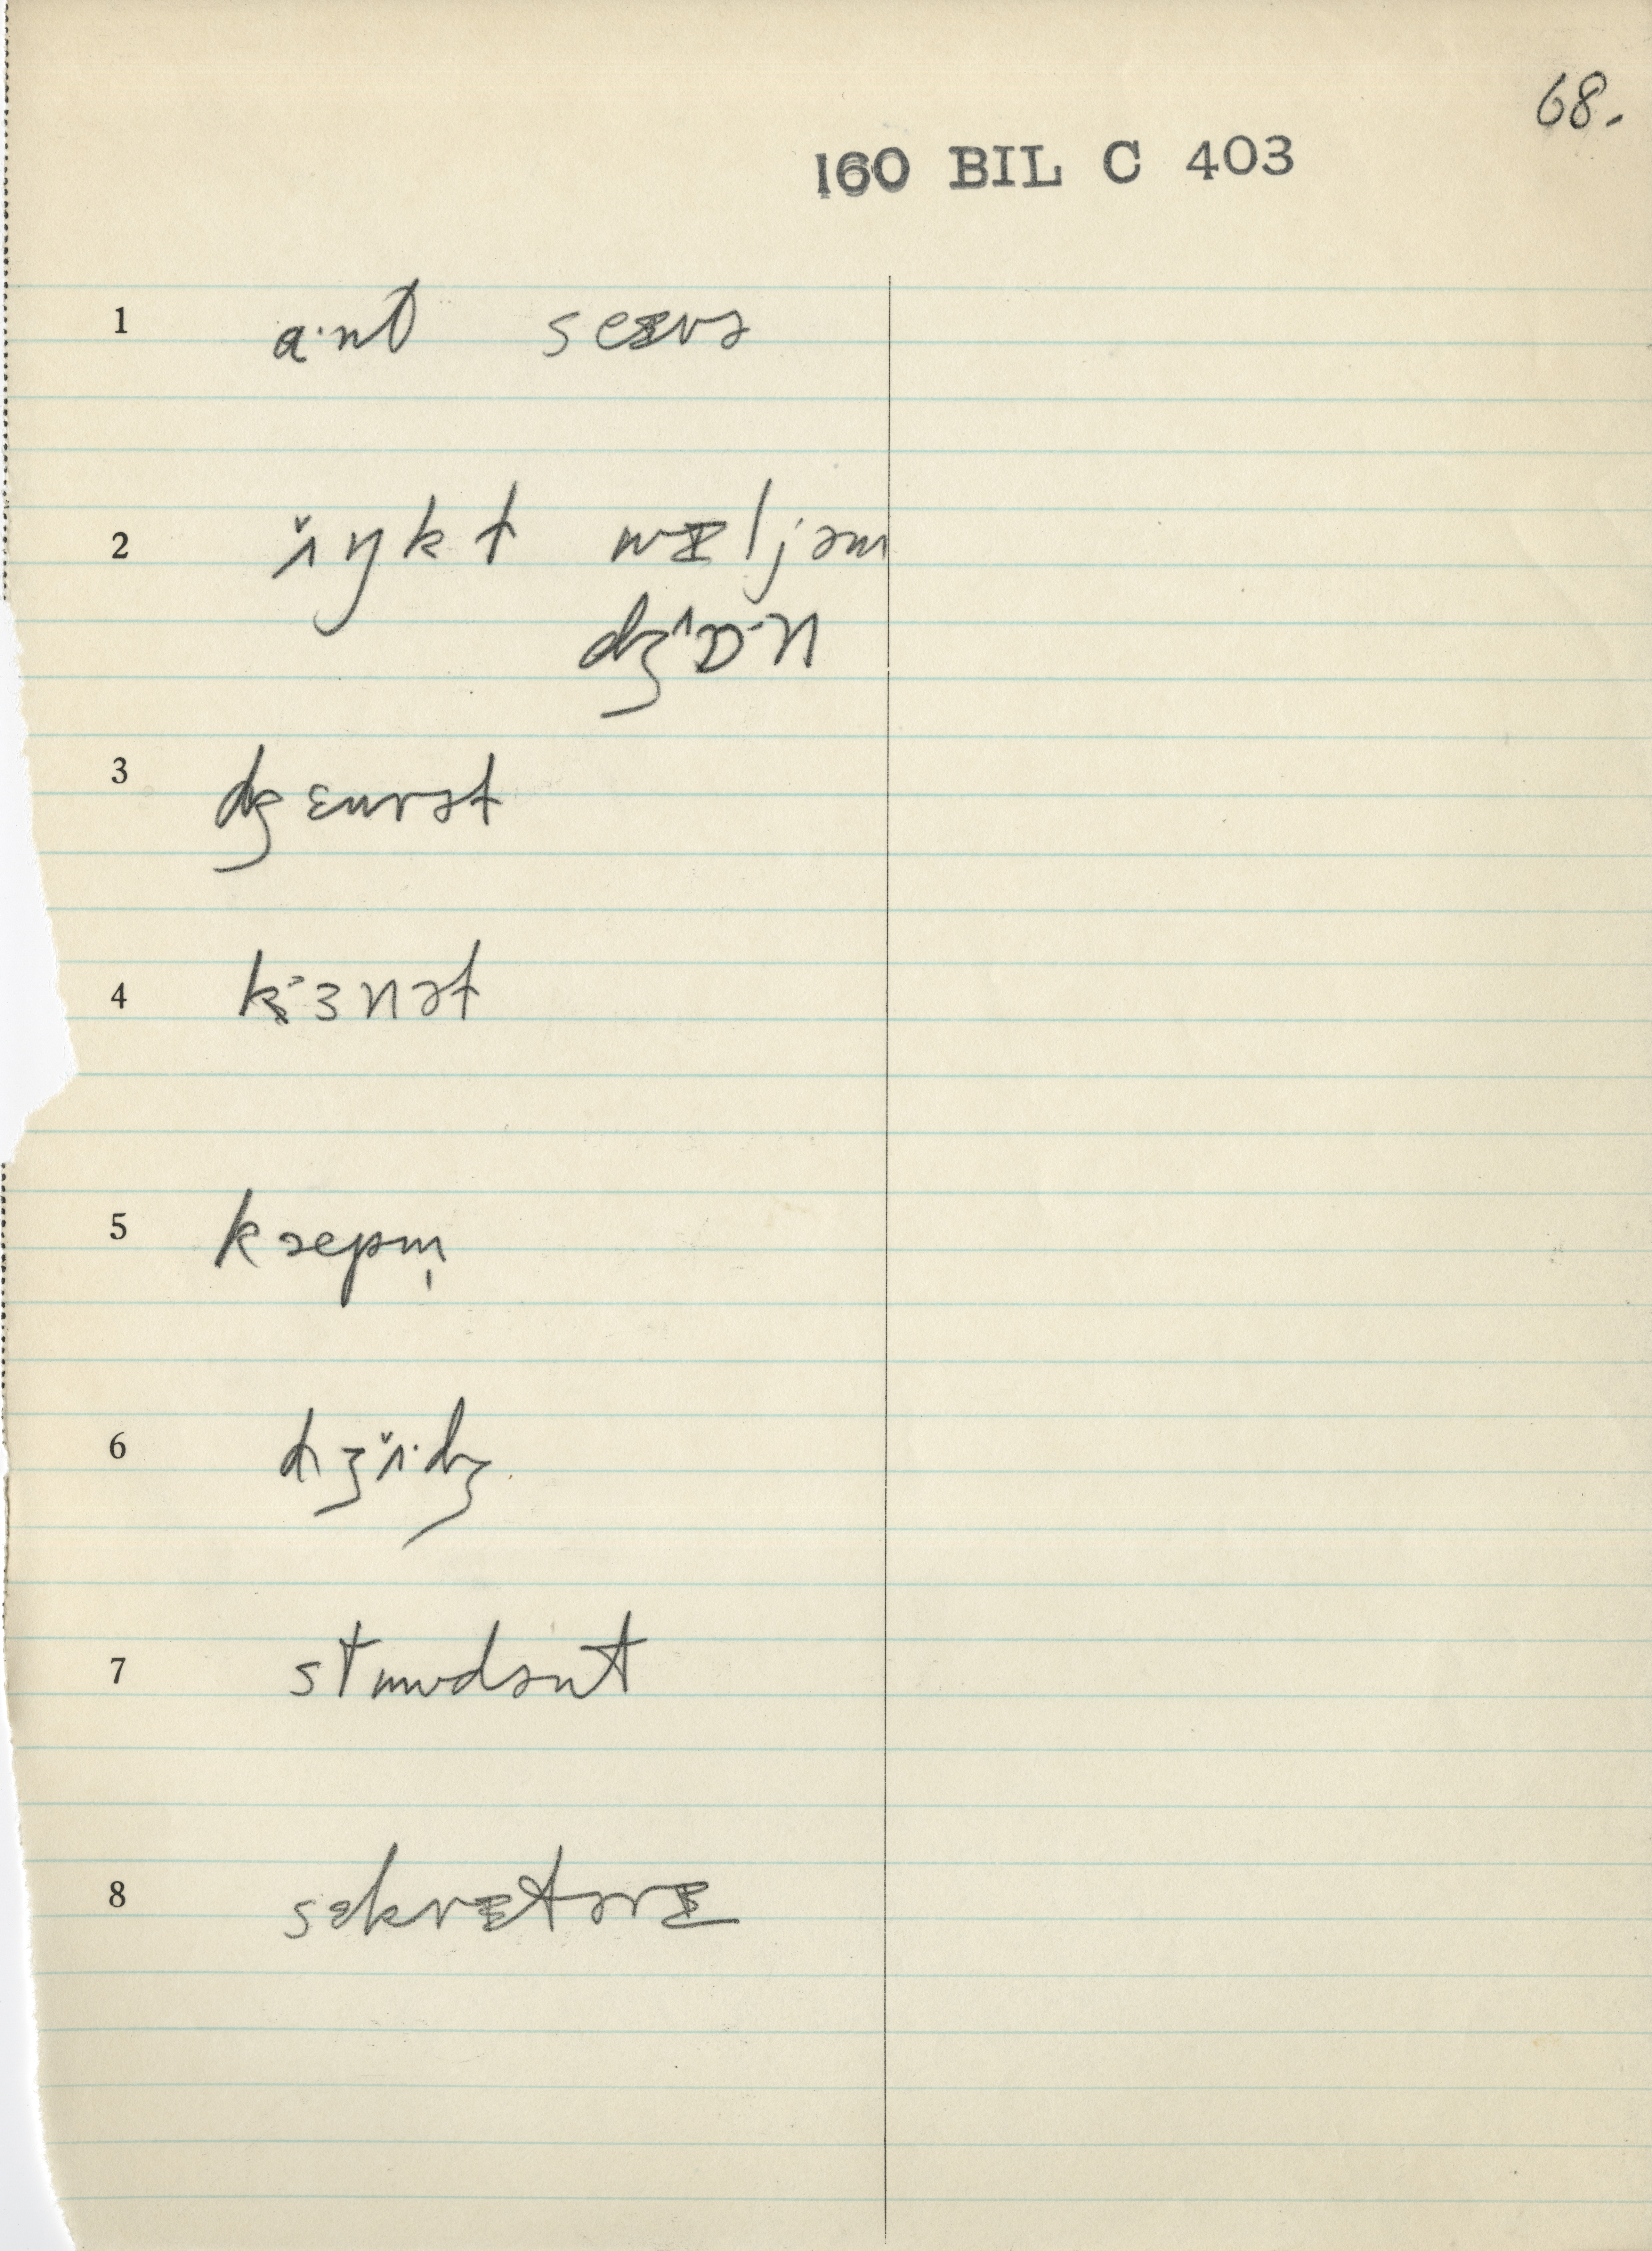 68.
160 BIL C 403
1 a·nt seɪrə
2 ʌ̌ŋkt wɪljəm
dʒʌɒ·n
3 dʒɛnrət
4 kɜnət
5 kæpm̩
6 dʒʌ̌·dʒ
7 stuudənt
8 sɛkrɪtərɪ